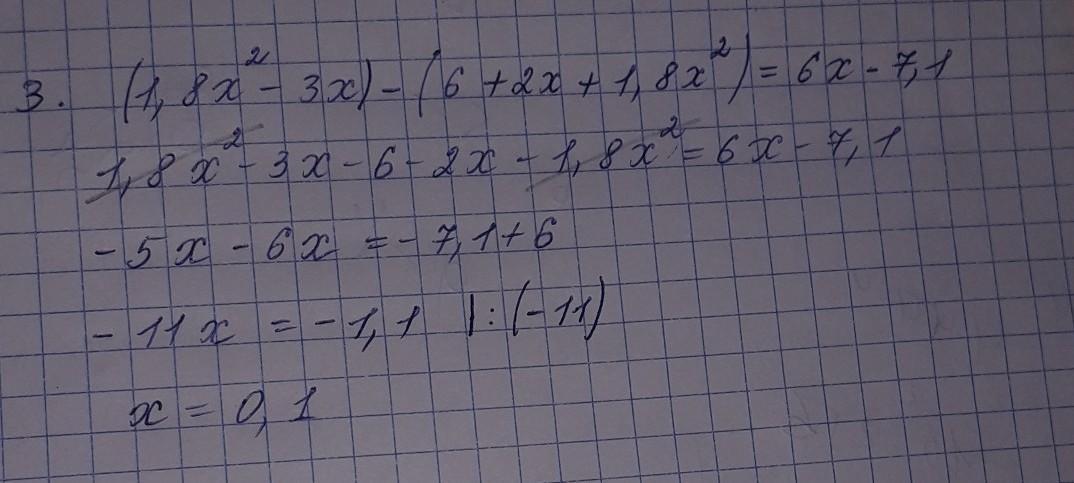 3. (1,8x² - 3x) - (6 + 2x + 1,8x²) = 6x - 7,1
1,8x² - 3x - 6 - 2x - 1,8x² = 6x - 7,1
- 5x - 6x = - 7,1 + 6
- 11x = - 1,1 |: (-11)
x = 0,1